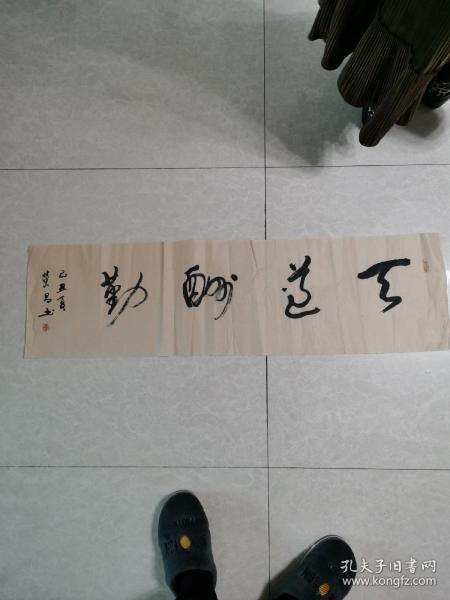 天道酬勤
己丑夏
书
孔夫子旧书网
www.kongfz.com